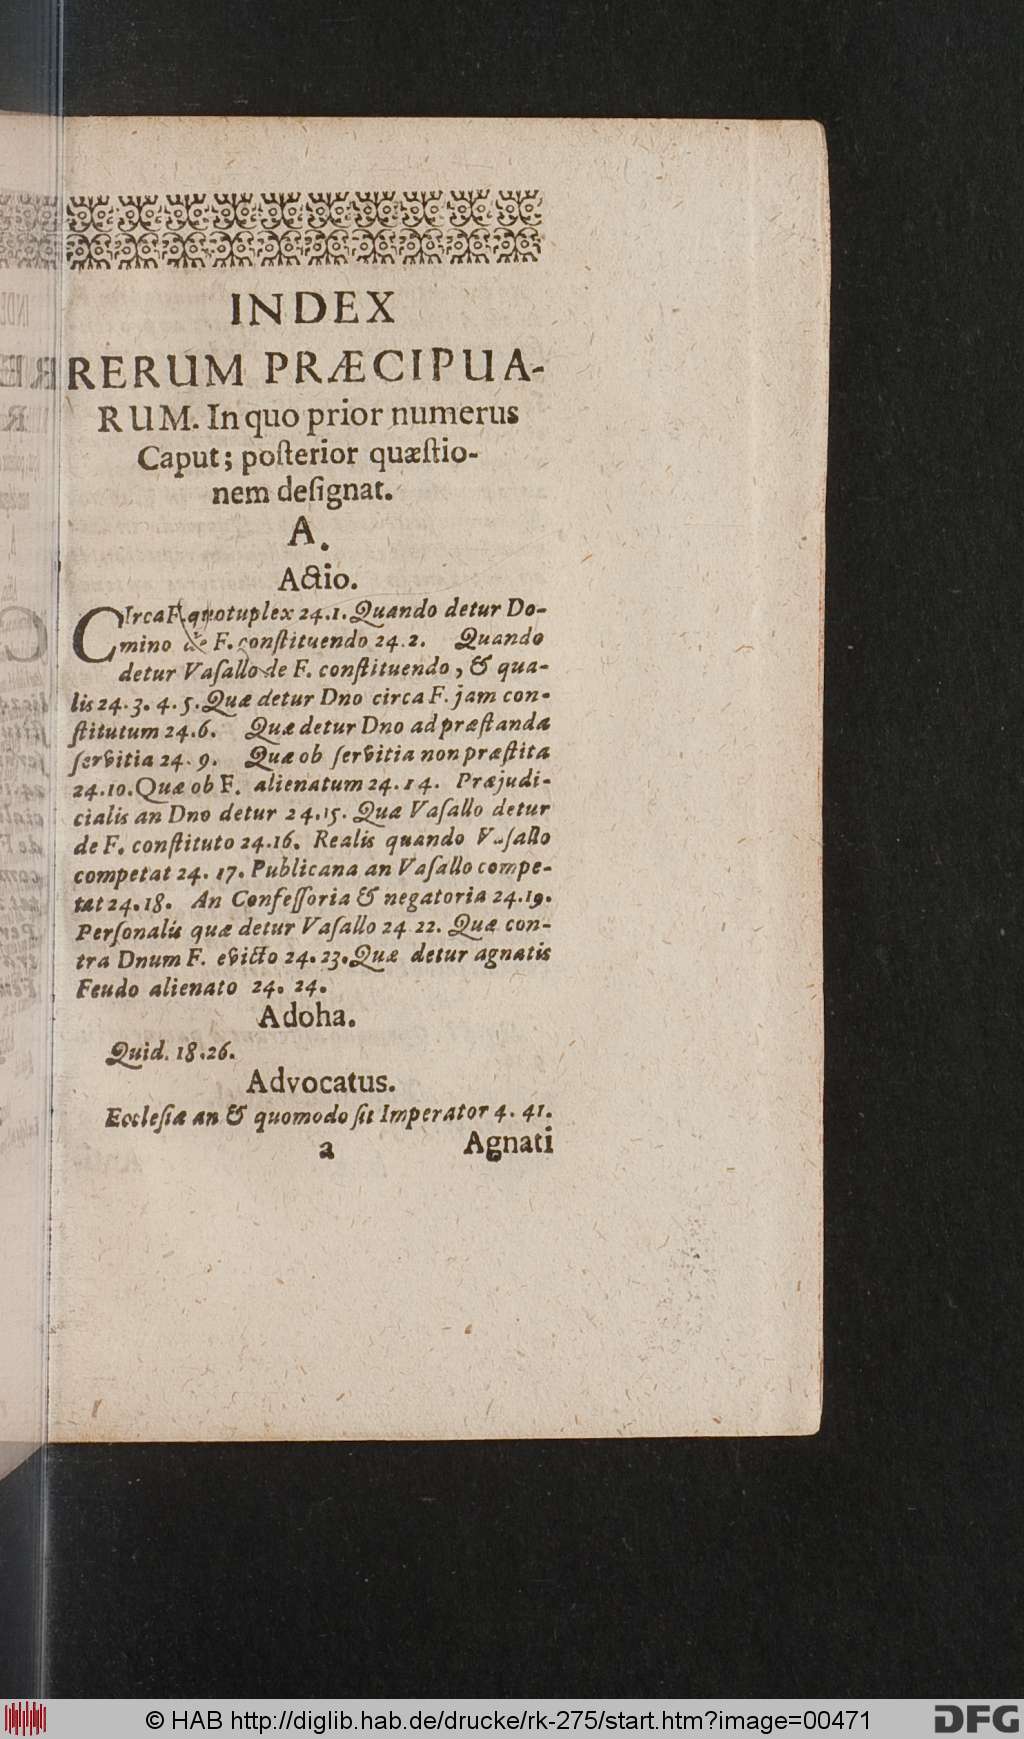 INDEX
RERUM PRÆCIPUA-
RUM. In quo prior numerus
Caput; poſterior quæſtio-
nem deſignat.
A.
Actio.
CIrca F. quotuplex 24.1. Quando detur Do-
mino de F. conſtituendo 24.2. Quando
detur Vaſallo de F. conſtituendo, & qua-
lis 24.3.4.5. Quæ detur Dno circa F. jam con-
ſtitutum 24.6. Quæ detur Dno ad præſtanda
ſervitia 24.9. Quæ ob ſervitia non præſtita
24.10. Quæ ob F. alienatum 24.14. Præjudi-
cialis an Dno detur 24.15. Quæ Vaſallo detur
de F. conſtituto 24.16. Realis quando Vaſallo
competat 24.17. Publicana an Vaſallo compe-
tat 24.18. An Confeſſoria & negatoria 24.19.
Perſonalis quæ detur Vaſallo 24 22. Quæ con-
tra Dnum F. evicto 24.23. Quæ detur agnatis
Feudo alienato 24.24.
Adoha.
Quid. 18.26.
Advocatus.
Eccleſiæ an & quomodo ſit Imperator 4.41.
a Agnati
© HAB http://diglib.hab.de/drucke/rk-275/start.htm?image=00471
DFG